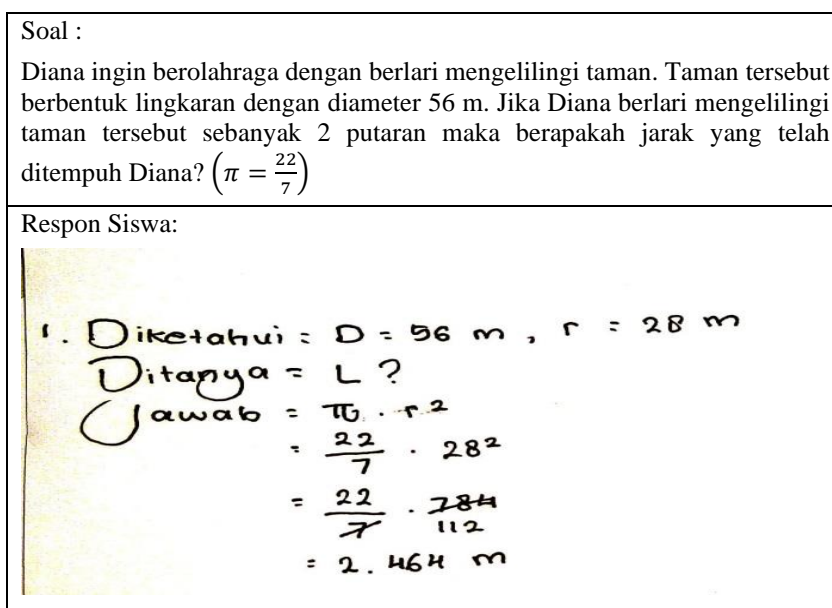 Soal :
Diana ingin berolahraga dengan berlari mengelilingi taman. Taman tersebut
berbentuk lingkaran dengan diameter 56 m. Jika Diana berlari mengelilingi
taman tersebut sebanyak 2 putaran maka berapakah jarak yang telah
ditempuh Diana? (π = 22/7)
Respon Siswa:
1. Diketahui = D = 56 m , r = 28 m
Ditanya = L ?
Jawab = π . r²
= 22/7 . 28²
= 22/7 . 784
112
= 2.464 m